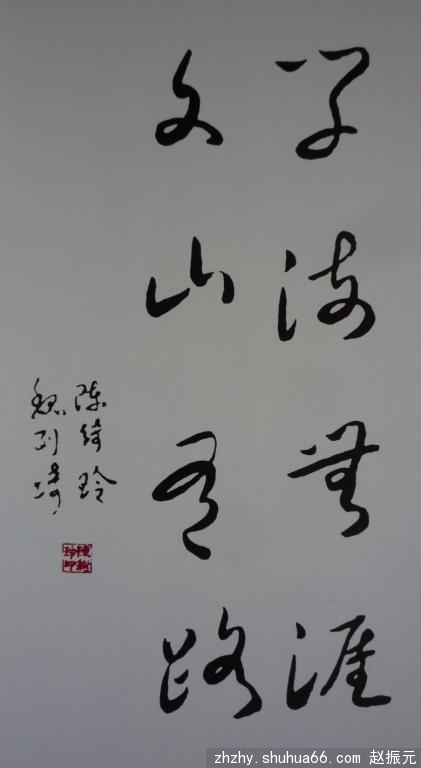 学海無涯
文山有路
陈绮玲
陳綺
玲印
zhzhy.shuhua66.com 赵振元